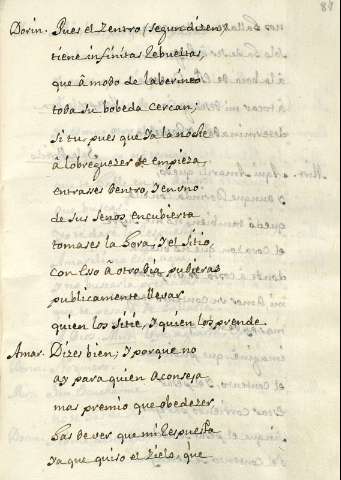 81
Dorin. Pues el Zentro (segun dizen)
tiene infinitas rebueltas
que â modo de laberinto
toda su bobeda cercan;
si tu, pues que ya la noche
â lobreguezer se empieza,
entrasses dentro, y en uno
de sus senos encubierta
tomases la hora, y el sitio
con eso â otro dia pudieras
publicamente llevar
quien los sitie, y quien los prende.
Amar. Dizes bien; y porque no
ay para quien aconseja
mas premio que obedezer
has de ver que mi respuesta
ya que quiso el zielo, que